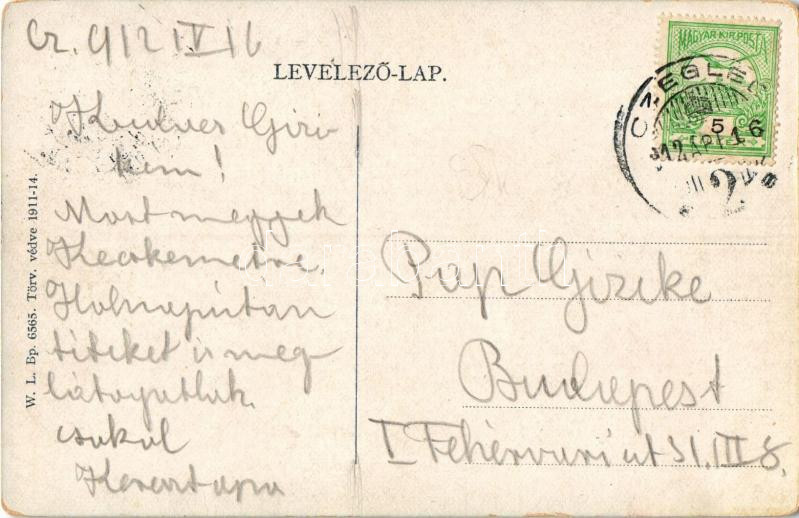 Cz. 912 IV 16
LEVELEZŐ-LAP.
Kedves Gizi-
kém!
Most megyek
Kecskemétre
Holnapután
titeket is meg-
látogatlak.
csókol
Keresztapa
W. L. Bp. 6565. Törv. védve 1911-14.
MAGYAR KIR. POSTA
CZEGLÉD
912 ÁPR 16
5
Pap Gizike
Budapest
I Fehérvári út 31. III 8.